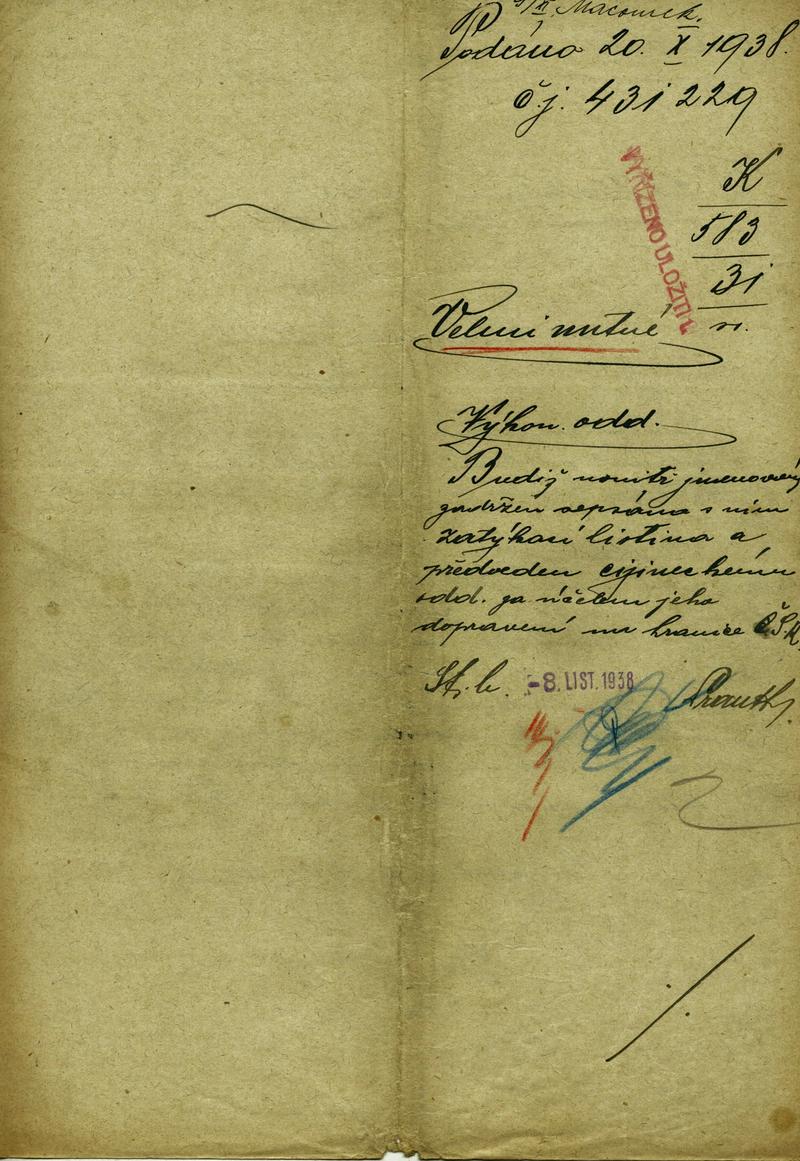 Macourek.
Podáno 20. X 1938.
čj. 431229
K
583
31
VYŘÍZENO ULOŽITI
Velmi nutné
Výkon. odd.
Budiž uvnitř jmenovaný
zadržen sepsána s ním
zatýkací listina a
předveden cizineckému
odd. za účelem jeho
dopravení na hranice ČSR
-8. LIST. 1938